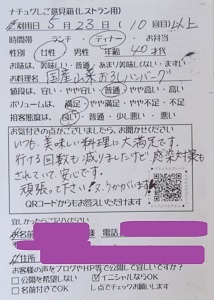 ナチュグレご意見箱(レストラン用)
ご利用日 5月23日(10回)以上
時間帯 ランチ・ディナー・お弁当
性別 女性 男性 年齢 40才代
お味は、美味しい・普通・あまり美味しくない
お料理名 国産山菜おろしハンバーグ
値段は、安い・やや安い・普通・やや高い・高い
ボリュームは 満足 やや満足・やや不足・不足
接客態度は、良い・普通・少し悪い・悪い
お気付きの点がございましたら、お聞かせください
いつも、美味しい料理に大満足です。
行ける回数も減りましたけど感染対策も
されていて、安心です。
頑張って下さい!
QRコードからもお答えいただけます
宜しかったらご記入ください
お名前
ご住所
お客様の声をブログやHP等で公開して宜しいですか?
公開を希望しない イニシャルならOK
名前付きでOK レ点でチェックお願いします